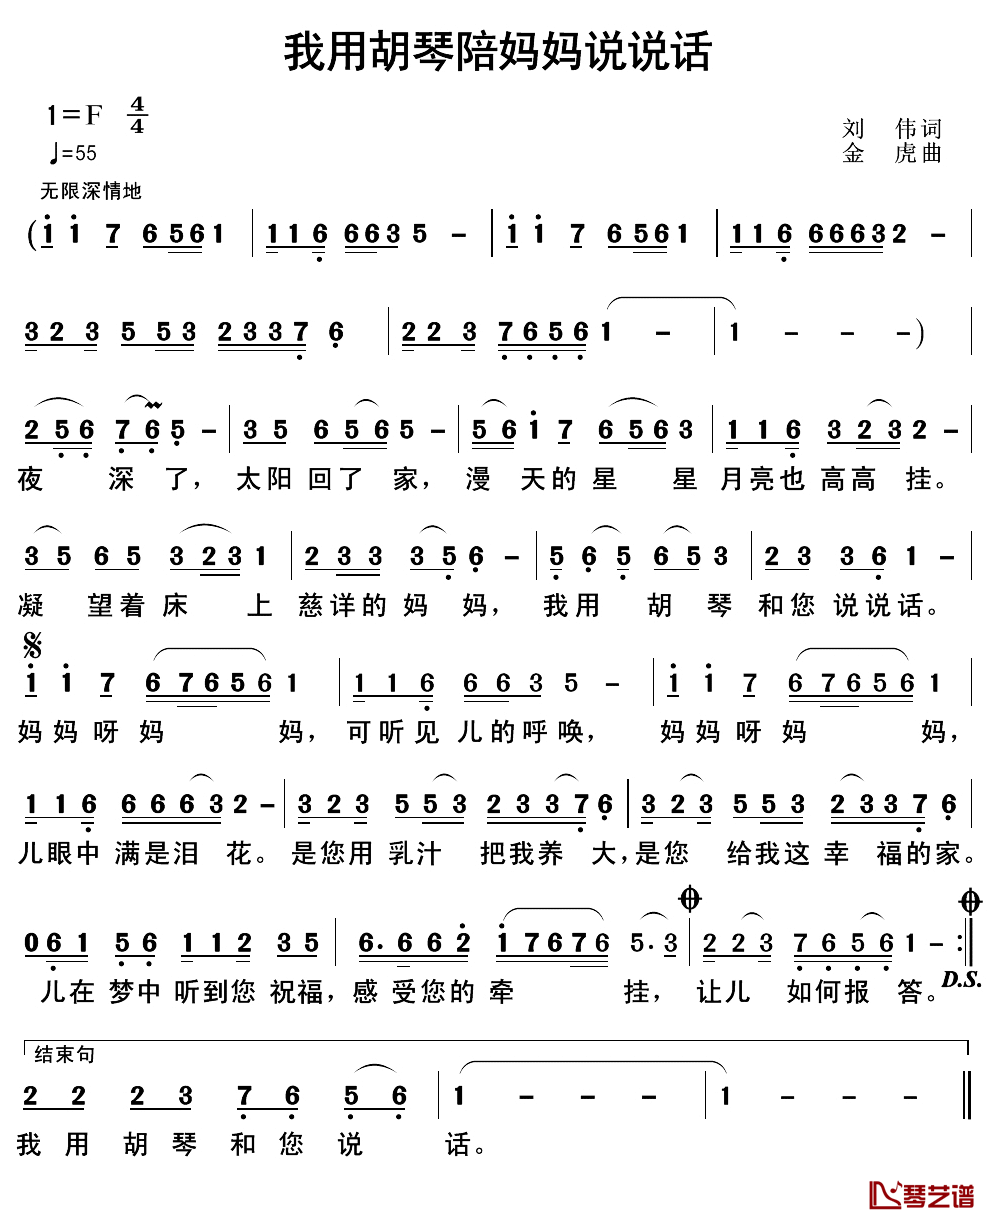 我用胡琴陪妈妈说说话
1=F 4/4
♩=55
刘 伟词
金 虎曲
无限深情地
(i i 7 6 5 6 1 | 1 1 6 6 6 3 5 - | i i 7 6 5 6 1 | 1 1 6 6 6 6 3 2 - |
3 2 3 5 5 3 2 3 3 7 6 | 2 2 3 7 6 5 6 1 - | 1 - - -) |
2 5 6 7 6 5 - | 3 5 6 5 6 5 - | 5 6 i 7 6 5 6 3 | 1 1 6 3 2 3 2 - |
夜 深 了, 太阳 回了 家, 漫 天的 星 星 月亮也 高高 挂。
3 5 6 5 3 2 3 1 | 2 3 3 3 5 6 - | 5 6 5 6 5 3 | 2 3 3 6 1 - |
凝 望着 床 上 慈详的 妈 妈, 我用 胡 琴 和您 说说话。
i i 7 6 7 6 5 6 1 | 1 1 6 6 6 3 5 - | i i 7 6 7 6 5 6 1
妈妈 呀 妈 妈, 可听见 儿的呼 唤, 妈妈 呀妈 妈,
1 1 6 6 6 6 3 2 - | 3 2 3 5 5 3 2 3 3 7 6 | 3 2 3 5 5 3 2 3 3 7 6 |
儿眼中 满是泪 花。 是您用 乳汁 把我养 大, 是您 给我这 幸 福的家。
0 6 1 5 6 1 1 2 3 5 | 6. 6 6 2 i 7 6 7 6 5. 3 | 2 2 3 7 6 5 6 1 - :||
儿在 梦中 听到您 祝福, 感 受您的 牵 挂, 让儿 如何报 答。
D.S.
结束句
2 2 2 3 7 6 5 6 | 1 - - - | 1 - - - ||
我 用 胡 琴 和 您 说 话。
琴艺谱